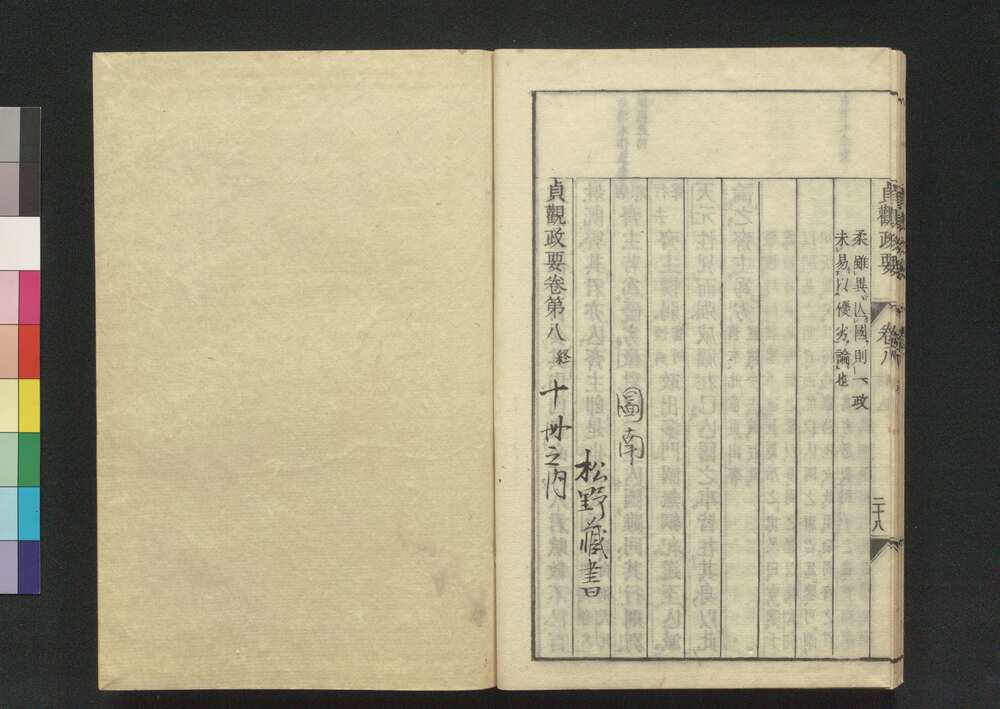 貞觀政要
卷八
二十八
柔雖異亾國則一政
未易以優劣論也
圖南
松野藏書
貞觀政要卷第八 終
十冊之内